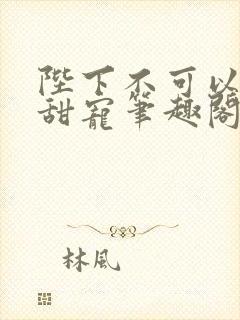 陛下不可以
甜寵筆趣閣
林風